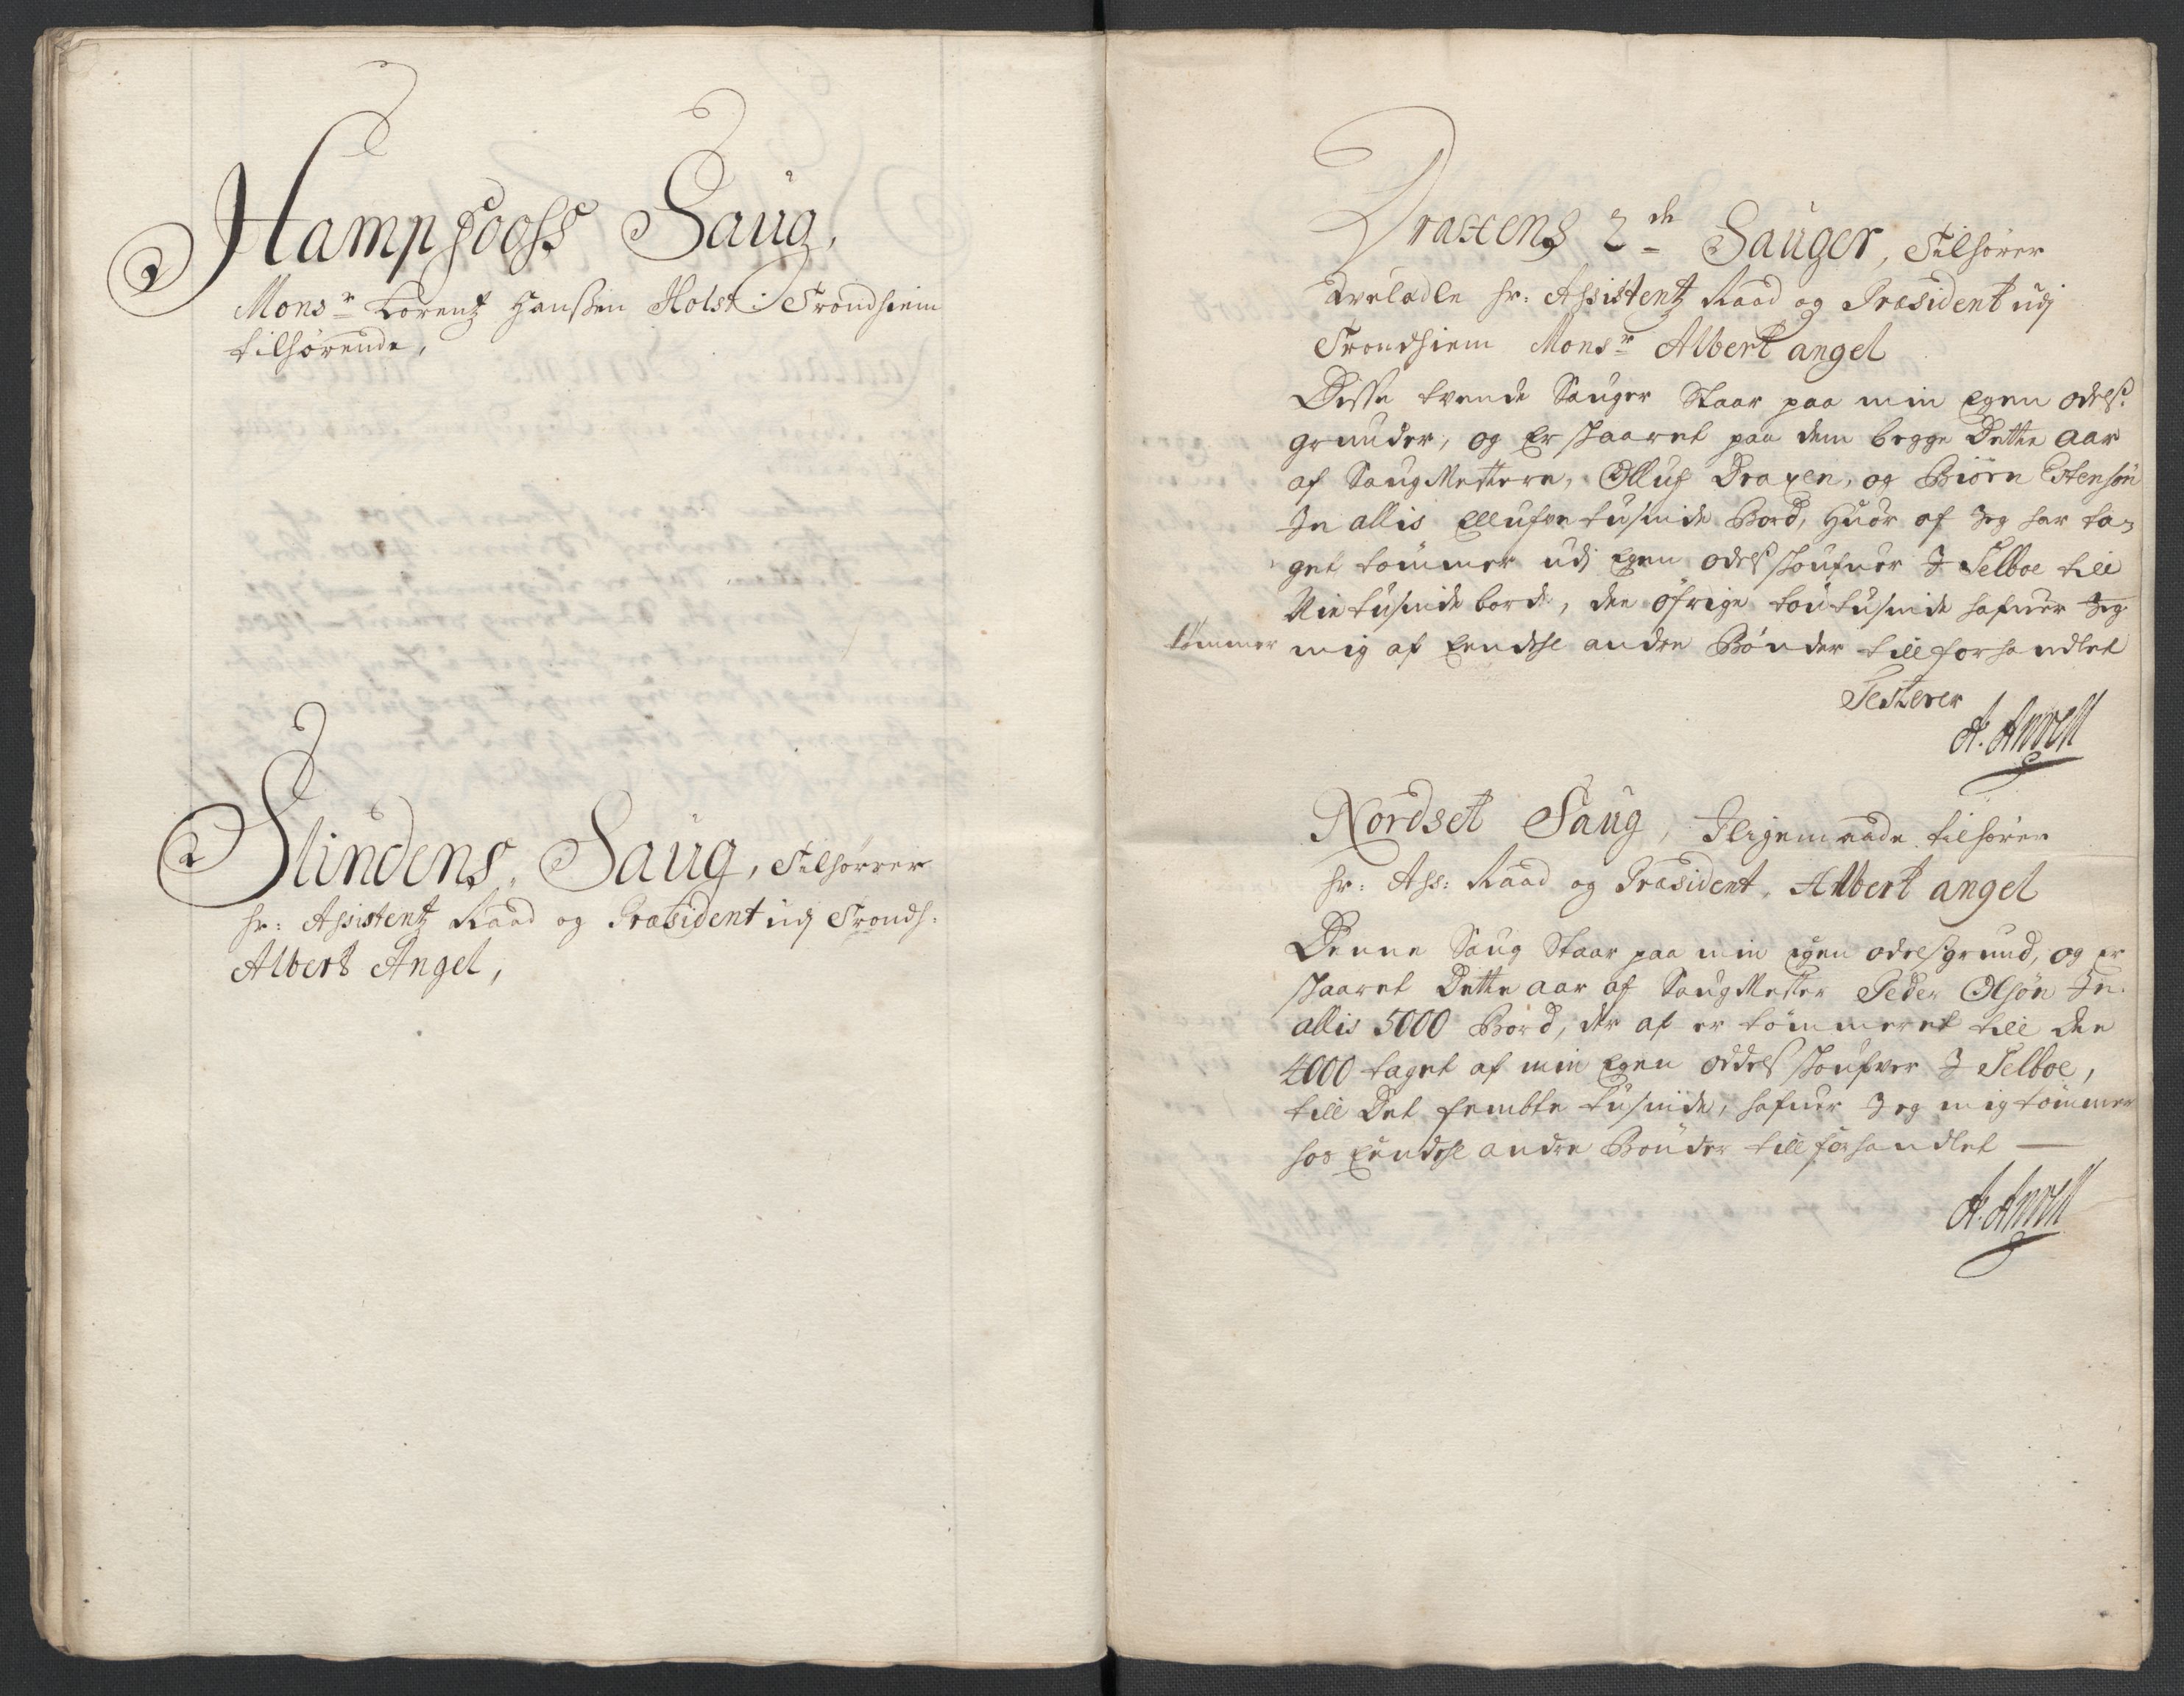 Hampfooss Saug,
Mons.r Lorentz Hanssen Holst i Trondhiem
tilhørende,
Slindens Saug, Tilhørrer
hr: Assistentz Raad og Præsident udj Trondh:
Albert Angel,
Draxens 2de Sauger, Tilhører
hr: Assistentz Raad og Præsident udj
Trondhiem Monsr Albert angel
Disse tvende Sauger Staar paa min Egen odelss
grunder, og Er skaaret paa dem begge Dette aar
af SaugMestere, Olluf Draxen, og Biörn Estensön
In allis Ellufve tusinde Bord, Huor af Jeg har ta-
get tömmer udj Egen odelss skoufuer J Selboe till
Nie tusinde bord, den öfrige tou tusinde hafuer Jeg
tömmer mig af Eendehl andre Bönder till forhandlet
Testerer
A. Angell
Nordset Saug, Jligemaade tilhörer
hr: Ass: Raad og Præsident, Albert angel
Denne Saug Staar paa min egen odelssgrund, og er
skaaret Dette aar af SaugMester Peder Olsön In
allis 5000 Bord, der af er tömmeret till den
4000 taget af min Egen oddels skoufver J Selboe,
till Det fembte tusinde, hafuer Jeg mig tömmer
hos Eendehl andre Bönder till forhandlet
A. Angell